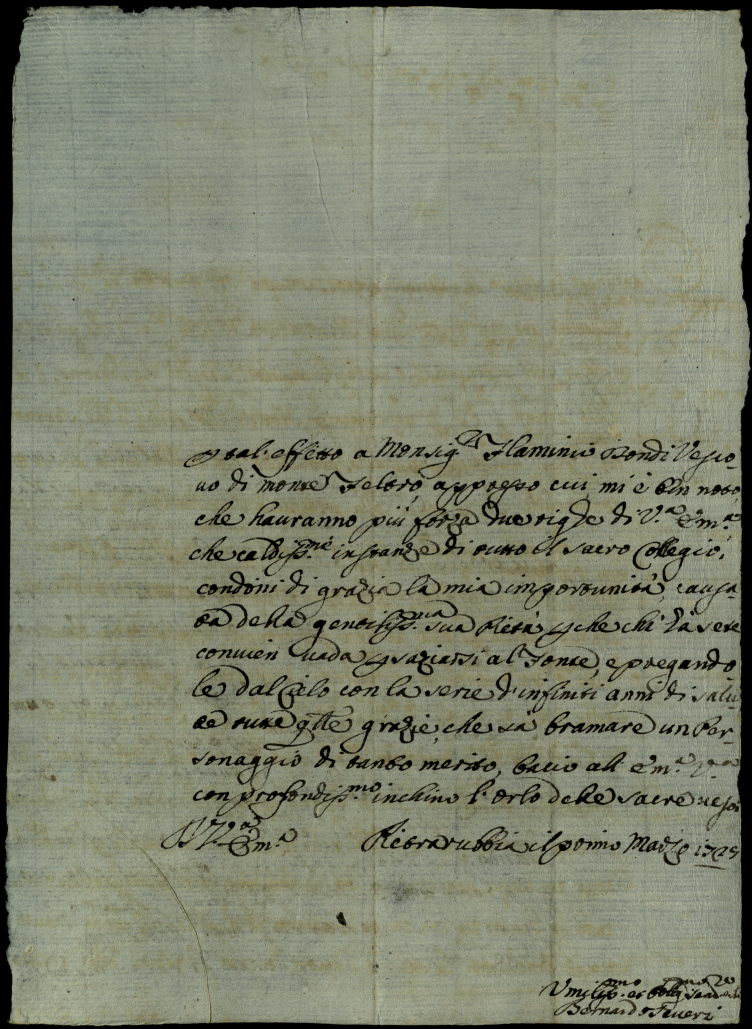 p tal' effetto a Monsig.r Flaminio Dondi Vesco-
uo di monte Feltro, appresso cui mi è ben noto,
che hauranno più forza due righe di V.a Em.a
che caldiss.me instanze di tutto il sacro Collegio,
condoni di grazia la mia importunità, causa-
ta della gentiliss.ma sua Pietà, p che chi hà sete
convien vada p saziarsi al Fonte, e pregando
le dal Cielo con la serie d'infiniti anni di salu
te tutte q.lle grazie, che sà bramare un Per-
sonaggio di tanto merito, bacio all' Em.a V.a
con profondiss.mo inchino l'orlo delle sacre ues
D V.a Em.a
Pietrarubbia il primo Marzo
Umiliss.mo et obblig
Bernardo